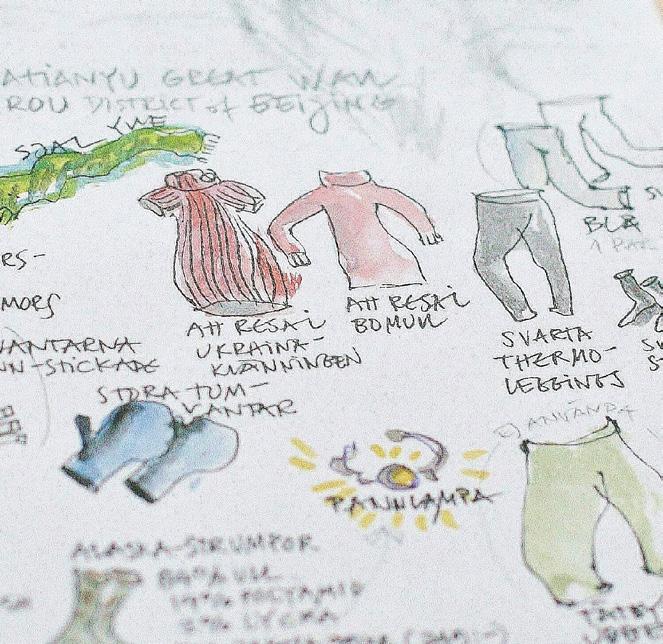 ATIANYU GREAT WALL
ROU DISTRICT of BEIJING
SJAL YWE
RS-
MORS
VANTARNA
NN-STICKADE
ATT RESA I
UKRAINA-
KLÄNNINGEN
ATT RESA I
BOMULL
SVARTA
THERMO-
LEGGINGS
BLÅ
1 PAR
STORA TUM-
VANTAR
PANNLAMPA
EJ ANVÄNDT
ALASKA-STRUMPOR
ULL
POLYAMID
LYCRA